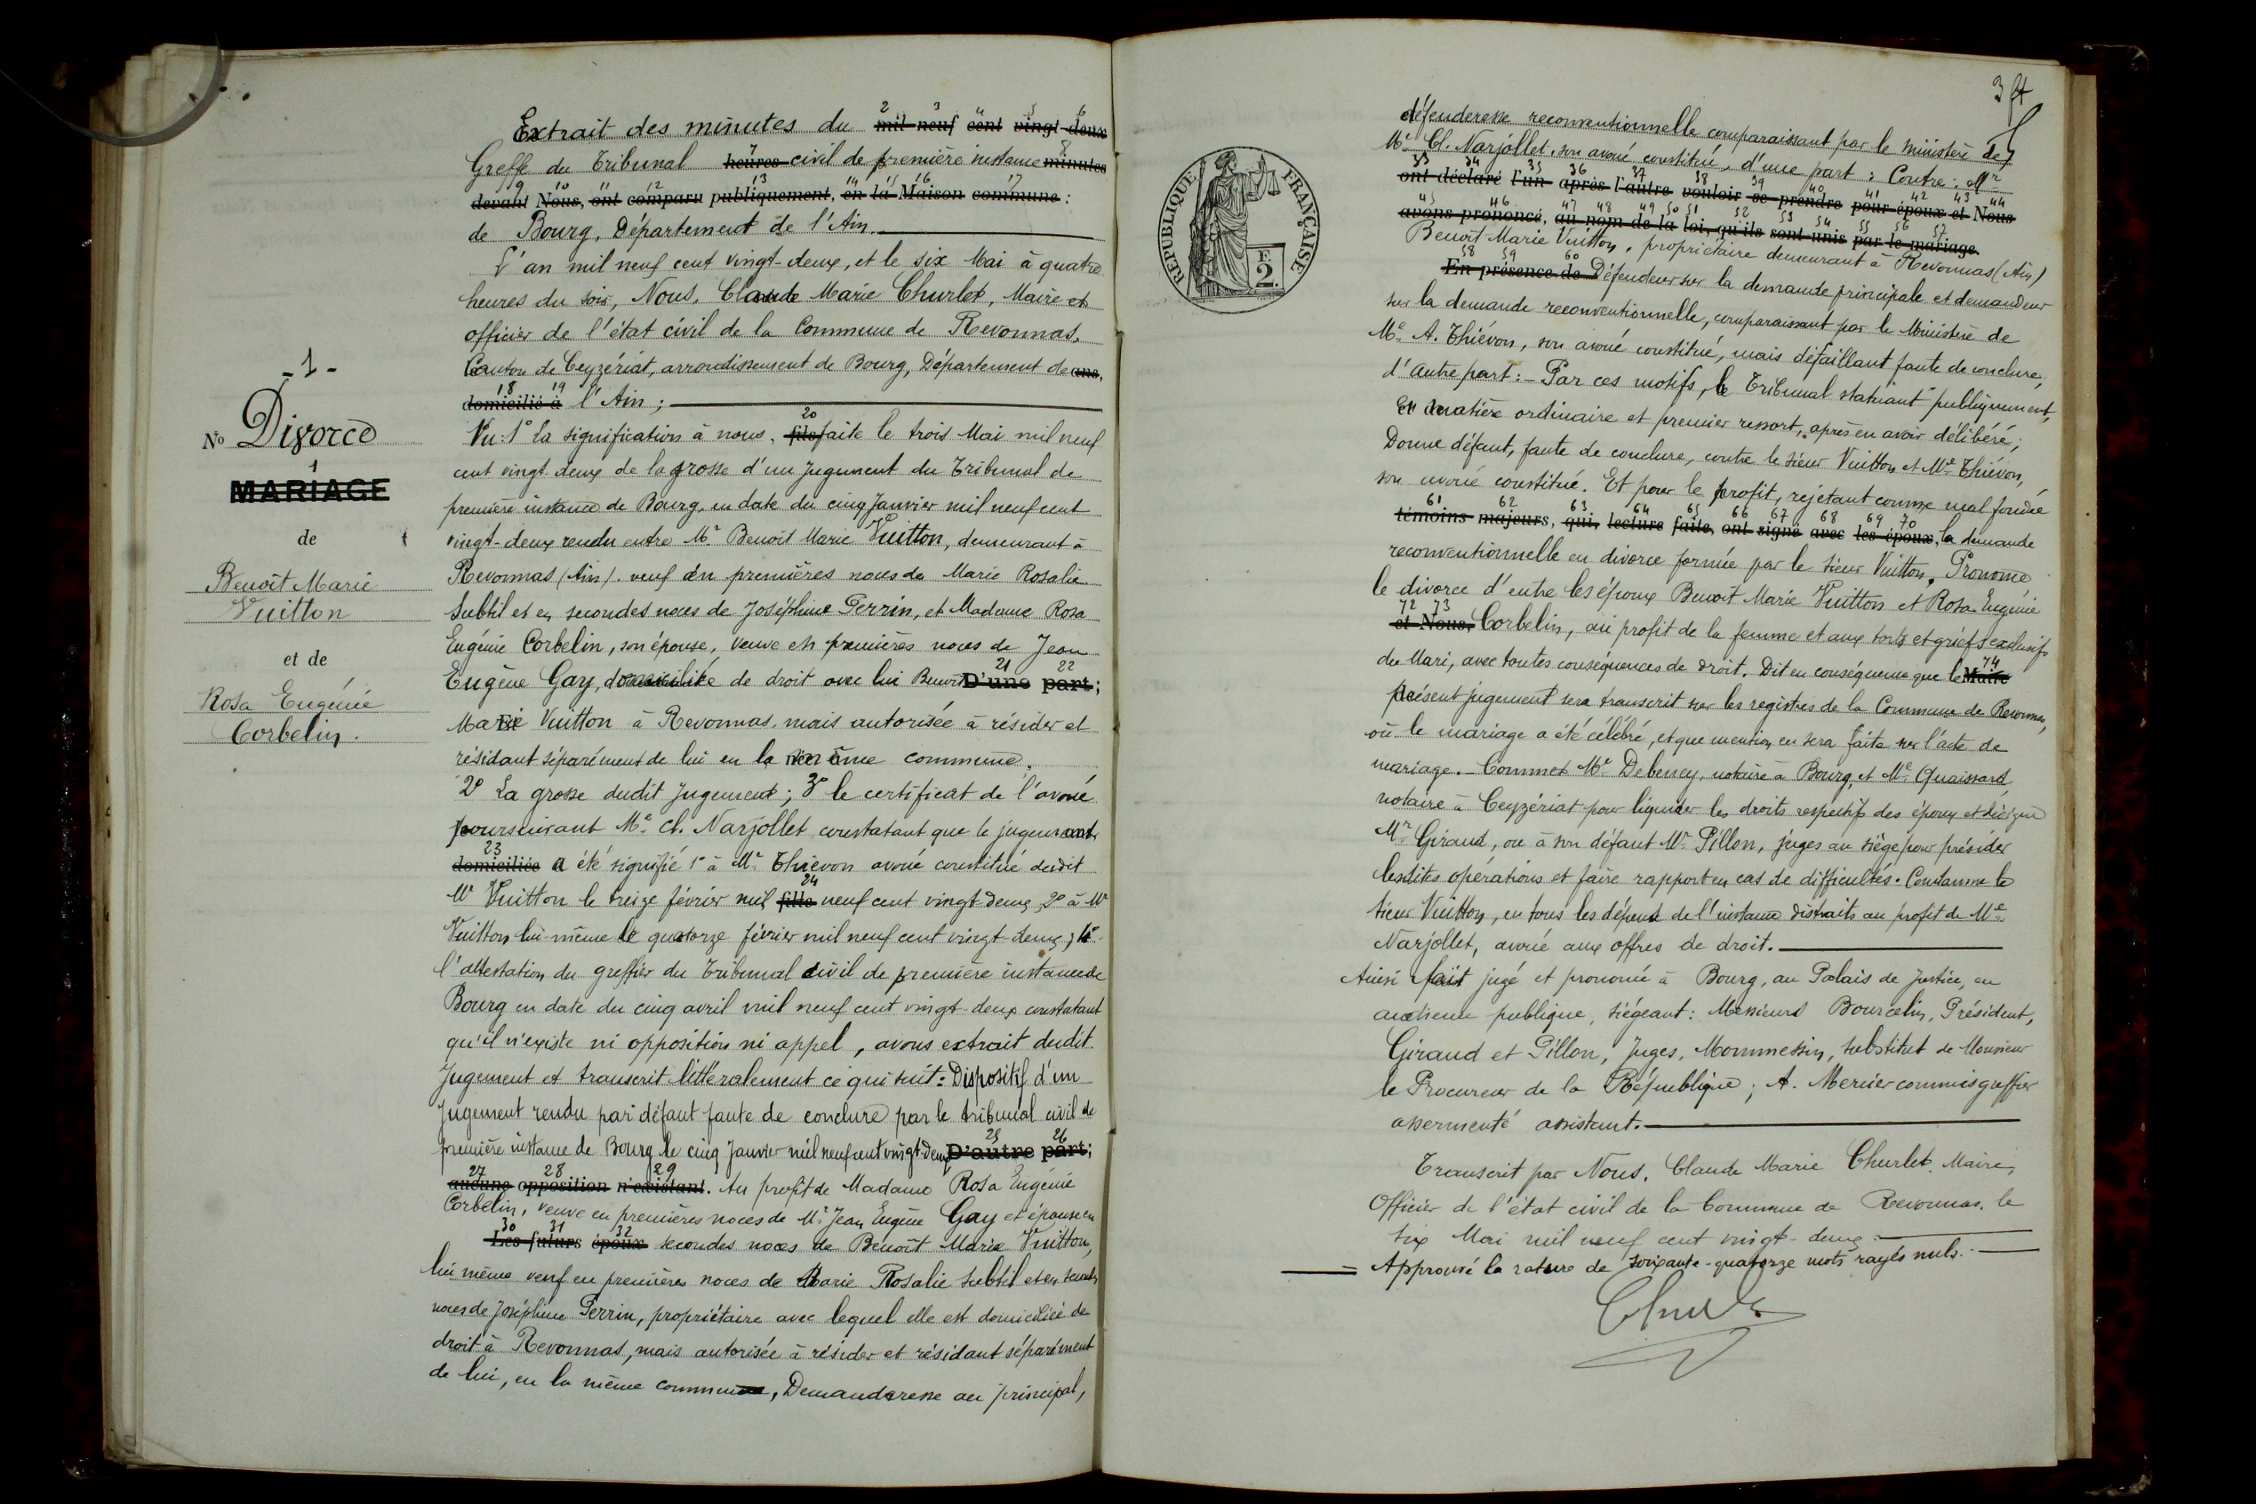 - 1 -
No Divorce
1
MARIAGE
de
Benoît Marie
Vuitton
et de
Rosa Eugénie
Corbelin.
2 3 4 5 6
Extrait des minutes du mil neuf cent vingt-deux
7 8
Greffe du Tribunal heures civil de première instance minutes
9 10 11 12 13 14 15 16 17
devant Nous, ont comparu publiquement, en la Maison commune :
de Bourg, Département de l'Ain.
L'an mil neuf cent vingt-deux, et le six Mai à quatre
heures du soir, Nous, Claude Marie Churlet, Maire et
officier de l'état civil de la Commune de Revonnas,
Canton de Ceyzériat, arrondissement de Bourg, Département de ans,
18 19
domicilié à l'Ain ;
20
Vu : 1° La signification à nous, fils faite le trois Mai mil neuf
cent vingt-deux de la grosse d'un jugement du Tribunal de
première instance de Bourg, en date du cinq Janvier mil neuf cent
vingt-deux rendu entre Mr Benoît Marie Vuitton, demeurant à
Revonnas (Ain). veuf en premières noces de Marie Rosalie
Subtil et en secondes noces de Joséphine Perrin, et Madame Rosa
Eugénie Corbelin, son épouse, veuve en premières noces de Jean
21 22
Eugène Gay, domiciliée de droit avec lui Benoît D'une part ;
Marie Vuitton à Revonnas, mais autorisée à résider et
résidant séparément de lui en la même commune.
2° La grosse dudit Jugement ; 3° le certificat de l'avoué
poursuivant Me Cl. Narjollet constatant que le jugement
23
domiciliée a été signifié 1° à Me Thiévon avoué constitué dudit
24
Mr Vuitton le treize février mil fille neuf cent vingt-deux, 2° à Mr
Vuitton lui-même le quatorze février mil neuf cent vingt-deux ; 4°
l'attestation du greffier du Tribunal civil de première instance de
Bourg en date du cinq avril mil neuf cent vingt-deux constatant
qu'il n'existe ni opposition ni appel, avons extrait dudit
Jugement et transcrit littéralement ce qui suit : Dispositif d'un
Jugement rendu par défaut faute de conclure par le tribunal civil de
25 26
première instance de Bourg le cinq Janvier mil neuf cent vingt-deux D'autre part ;
27 28 29
aucune opposition n'existant. Au profit de Madame Rosa Eugénie
Corbelin, veuve en premières noces de Mr Jean Eugène Gay et épouse en
30 31 32
Les futurs époux secondes noces de Benoît Marie Vuitton,
lui même veuf en premières noces de Marie Rosalie Subtil et en secondes
noces de Joséphine Perrin, propriétaire avec lequel elle est domiciliée de
droit à Revonnas, mais autorisée à résider et résidant séparément
de lui, en la même commune, Demanderesse au principal,
REPUBLIQUE FRANÇAISE
F.
2.
3 ft
défenderesse reconventionnelle comparaissant par le ministère de
Me Cl. Narjollet, son avoué constitué, d'une part : Contre : Mr
33 34 35 36 37 38 39 40 41 42 43 44
ont déclaré l'un après l'autre vouloir se prendre pour époux et Nous
45 46 47 48 49 50 51 52 53 54 55 56 57
avons prononcé, au nom de la loi, qu'ils sont unis par le mariage.
Benoît Marie Vuitton, propriétaire demeurant à Revonnas (Ain)
58 59 60
En présence de Défendeur sur la demande principale et demandeur
sur la demande reconventionnelle, comparaissant par le Ministère de
Me A. Thiévon, son avoué constitué, mais défaillant faute de conclure,
d'autre part : - Par ces motifs, le Tribunal statuant publiquement,
En matière ordinaire et premier ressort, après en avoir délibéré ;
Donne défaut, faute de conclure, contre le sieur Vuitton et Me Thiévon,
son avoué constitué. Et pour le profit, rejetant comme mal fondée
61 62 63 64 65 66 67 68 69 70
témoins majeurs, qui, lecture faite, ont signé avec les époux, la demande
reconventionnelle en divorce formée par le sieur Vuitton, Prononce
le divorce d'entre les époux Benoît Marie Vuitton et Rosa Eugénie
72 73
et Nous, Corbelin, au profit de la femme et aux torts et griefs exclusifs
74
du Mari, avec toutes conséquences de droit. Dit en conséquence que le Maire
présent jugement sera transcrit sur les registres de la Commune de Revonnas,
où le mariage a été célébré, et que mention en sera faite sur l'acte de
mariage. - Commet Me Debeney, notaire à Bourg, et Me Quaissard,
notaire à Ceyzériat pour liquider les droits respectifs des époux et désigne
Mr Giraud, ou à son défaut Mr Pillon, juges au siège pour présider
lesdites opérations et faire rapport en cas de difficultés. Condamne le
sieur Vuitton, en tous les dépens de l'instance distraits au profit de Me
Narjollet, avoué aux offres de droit.
Ainsi fait jugé et prononcé à Bourg, au Palais de Justice, en
audience publique, siégeant : Messieurs Bourcelin, Président,
Giraud et Pillon, Juges, Mommessin, substitut de Monsieur
le Procureur de la République ; A. Mercier commis greffier
assermenté assistant.
Transcrit par Nous, Claude Marie Churlet, Maire,
Officier de l'état civil de la Commune de Revonnas, le
six Mai mil neuf cent vingt-deux
Approuvé la rature de soixante-quatorze mots rayés nuls.
Churlet